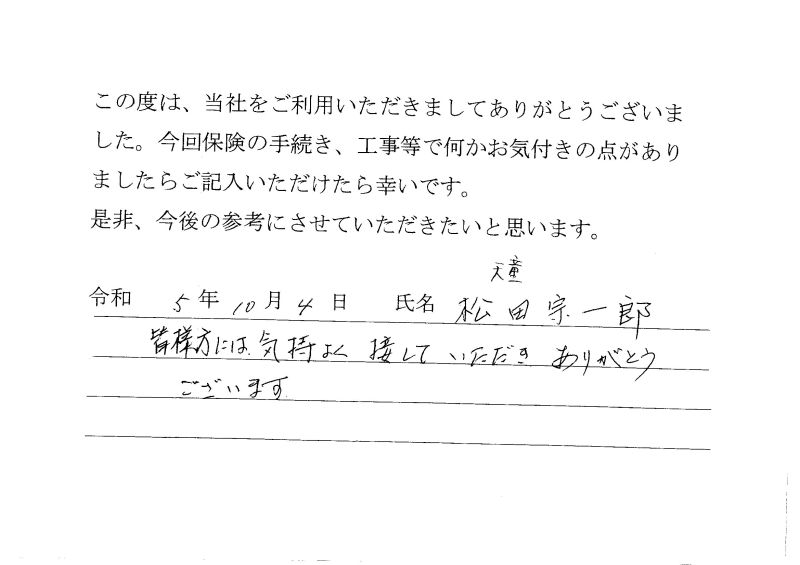 この度は、当社をご利用いただきましてありがとうございま
した。今回保険の手続き、工事等で何かお気付きの点があり
ましたらご記入いただけたら幸いです。
是非、今後の参考にさせていただきたいと思います。
天童
令和 5 年 10 月 4 日 氏名 松田宗一郎
皆様方には気持よく接していただきありがとう
ございます